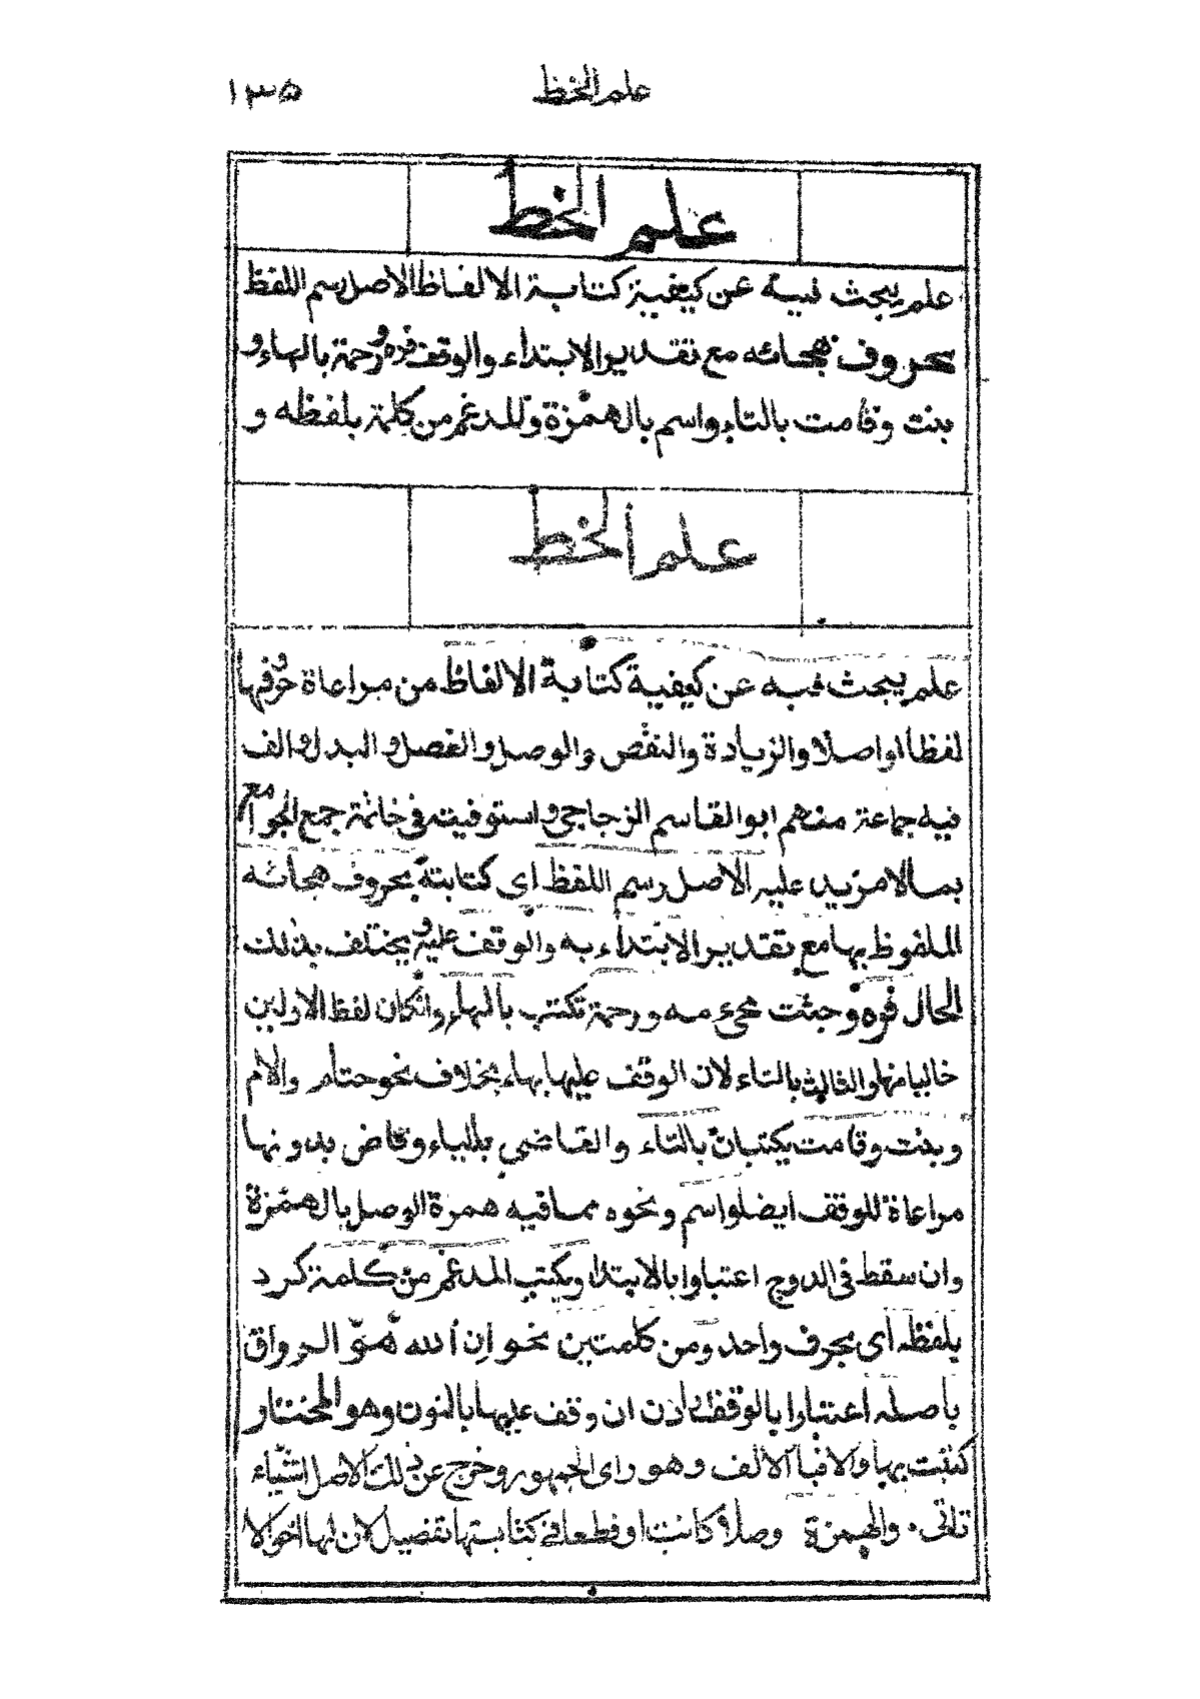 علم الخط
١٣٥
علم الخط
علم يبحث فيه عن كيفية كتابة الالفاظ الاصل رسم اللفظ
بحروف هجائه مع تقدير الابتداء والوقف فره ورحمة بالهاء و
بنت وقامت بالتاء واسم بالهمزة وللمدغم من كلمة بلفظه و
علم الخط
علم يبحث فيه عن كيفية كتابة الالفاظ من مراعاة حروفها
لفظا او اصلا والزيادة والنقص والوصل والفصل والبدل والف
فيه جماعة منهم ابو القاسم الزجاجي واستوفيته في خاتمة جمع الجوامع
بما لا مزيد عليه الاصل رسم اللفظ اى كتابته بحروف هجائه
الملفوظ بها مع تقدير الابتداء به والوقف عليه ويختلف بذلك
الحال فره وجئت مجىء مه ورحمة تكتب بالهاء وانكان لفظ الاولين
خاليا منها والثالث بالتاء لان الوقف عليها بهاء بخلاف نحو حتام والام
وبنت وقامت يكتبان بالتاء والقاضي بالياء وقاض بدونها
مراعاة للوقف ايضا واسم ونحوه مما فيه همزة الوصل بالهمزة
وان سقط فى الدرج اعتبارا بالابتداء ويكتب المدغم من كلمة كرد
بلفظه اى بحرف واحد ومن كلمتين نحو ان الله هو الرزاق
باصله اعتبارا بالوقف اذن ان وقف عليها بالنون وهو المختار
كتبت بها والا فبالالف وهو راى الجمهور وخرج عن ذلك الاصل اشياء
تاتى والهمزة وصلا كانت او قطعا في كتابتها تفصيل لان لها احوالا